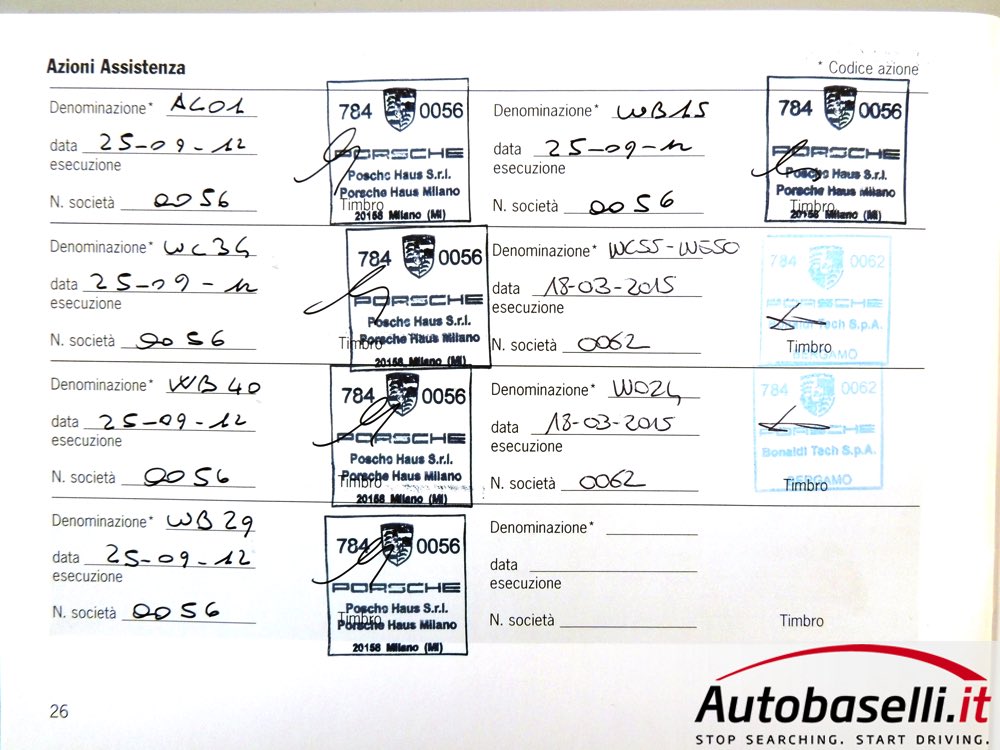 Azioni Assistenza
* Codice azione
Denominazione* AL01
data 25-09-12
esecuzione
N. società 0056
784 0056
PORSCHE
Posche Haus S.r.l.
Porsche Haus Milano
Timbro
20158 Milano (MI)
Denominazione* WB15
data 25-09-12
esecuzione
N. società 0056
784 0056
PORSCHE
Posche Haus S.r.l.
Porsche Haus Milano
Timbro
20158 Milano (MI)
Denominazione* WC34
data 25-09-12
esecuzione
N. società 0056
784 0056
PORSCHE
Posche Haus S.r.l.
Porsche Haus Milano
Timbro
20158 Milano (MI)
Denominazione* WC55-WE50
data 18-03-2015
esecuzione
N. società 0062
784 0062
PORSCHE
Bonaldi Tech S.p.A.
Timbro
BERGAMO
Denominazione* WB40
data 25-09-12
esecuzione
N. società 0056
784 0056
PORSCHE
Posche Haus S.r.l.
Porsche Haus Milano
Timbro
20158 Milano (MI)
Denominazione* WD24
data 18-03-2015
esecuzione
N. società 0062
784 0062
PORSCHE
Bonaldi Tech S.p.A.
BERGAMO
Timbro
Denominazione* WB29
data 25-09-12
esecuzione
N. società 0056
784 0056
PORSCHE
Posche Haus S.r.l.
Porsche Haus Milano
Timbro
20158 Milano (MI)
Denominazione*
data
esecuzione
N. società
Timbro
26
Autobaselli.it
STOP SEARCHING. START DRIVING.